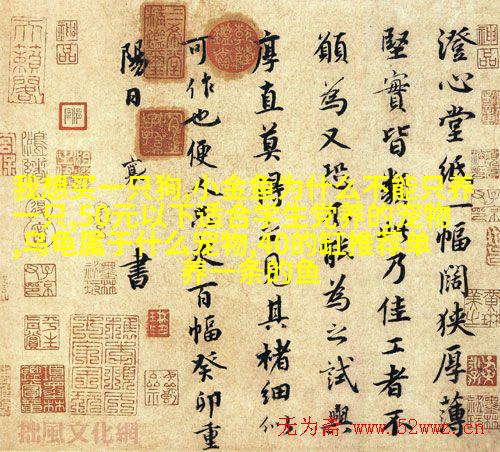 澄心堂紙一幅闊狹厚薄
堅實皆類此乃佳工者不
願為又恐不能為之試與
厚直莫得之見其楮細似
可作也便人只求百幅癸卯重
陽日襄書
我想买一只狗,小金鱼为什么不能只养
一只,50元以下适合学生党养的宠物
,乌龟属于什么宠物,40的缸推荐单
养一条的鱼
拙風文化網
无为斋 www.52wwz.cn